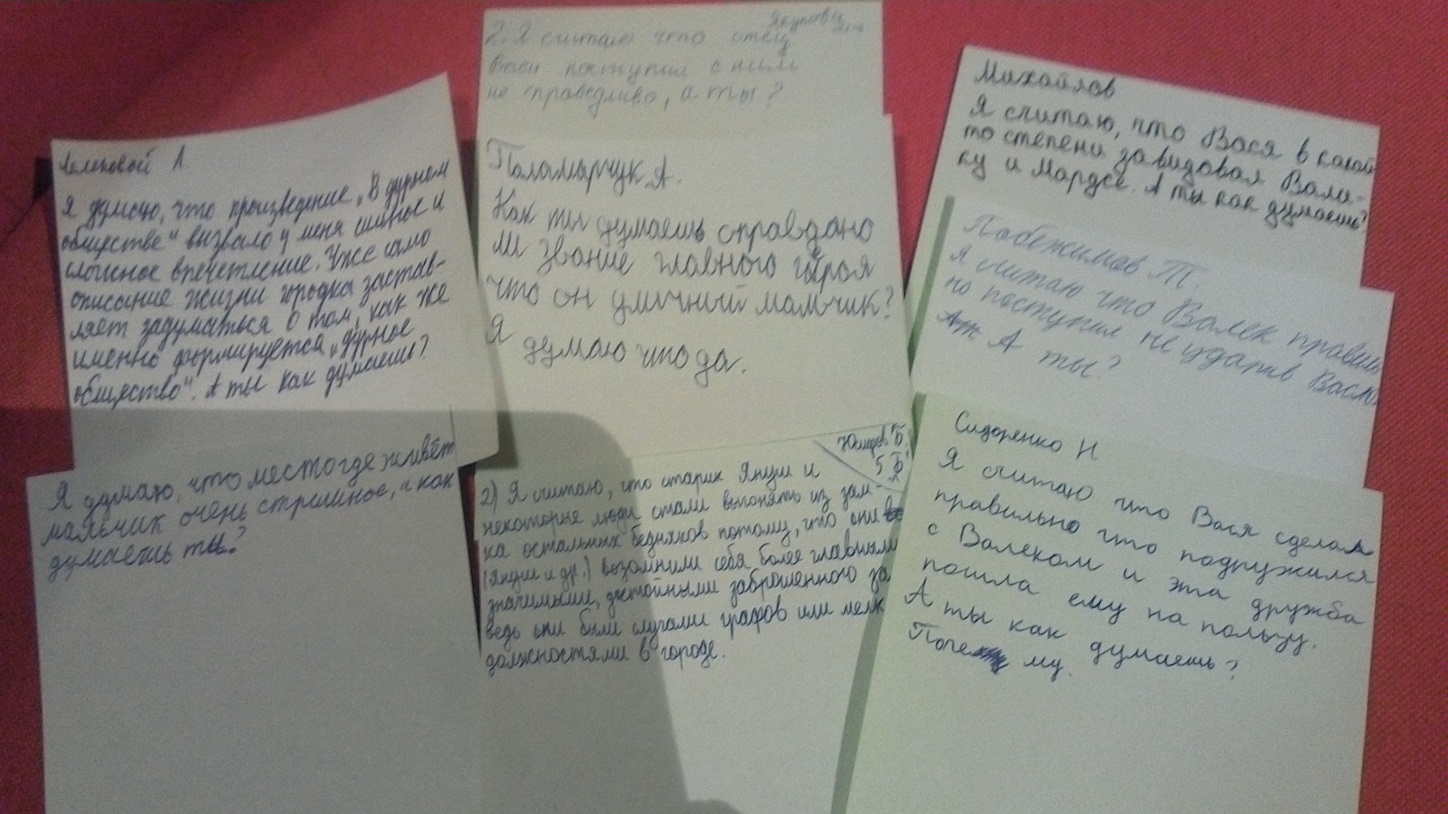 Я думаю, что произведение „В дурном
обществе" вызвало у меня сильное и
сложное впечетление. Уже само
описание жизни городка застав-
ляет задуматься о том, как же
именно формируется „дурное
общество". А ты как думаешь?
Я думаю, что место где живёт
мальчик очень страшное, а как
думаешь ты?
Якупова
2. Я считаю что отец
Васи поступил с ним
не праведливо, а ты?
Паламарчук А.
Как ты думаешь оправдано
ли звание главного героя
что он уличный мальчик?
Я
думаю что да.
5 Б
2) Я считаю, что старик Януш и
некоторые люди стали выгонять из зам-
ка остальных бедняков потому, что они
(Януш и др.) возомнили себя более главными
значимыми, достойными заброшенного за
ведь они были слугами графов или мелк
должностями в городе.
Михайлов
Я считаю, что Вася в какой
то степени завидовал Вале-
ку и Марусе. А ты как думаешь?
Побежимов Т.
Я считаю что Валек правиль
но поступил не ударив Васю
А ты?
Сидоренко Н
Я считаю что Вася сделал
правильно что подружился
с Валеком и эта дружба
пошла ему на пользу.
А ты как думаешь?
Почему.